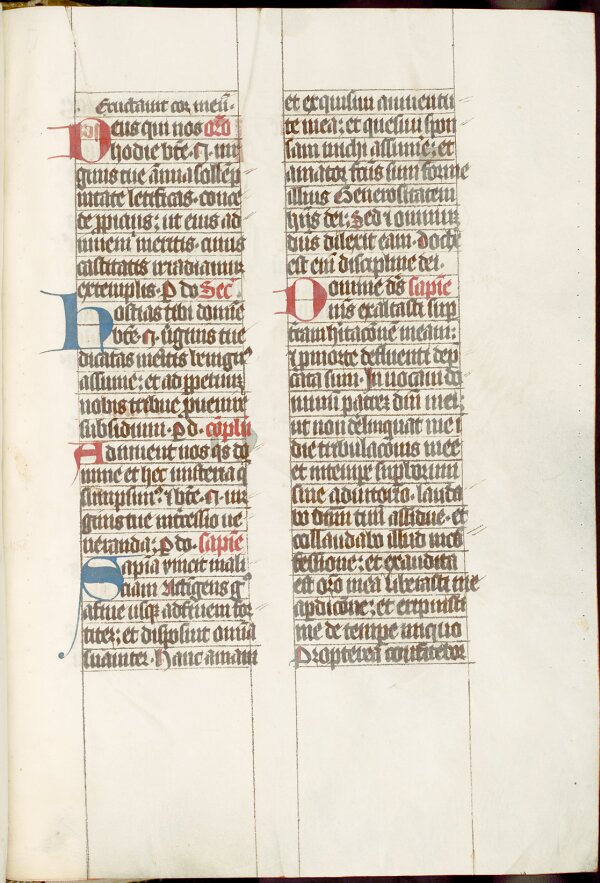 Eructauit cor meu.
Deus qui nos oro
hodie bte .n. uir
ginis tue annua sollep
nitate letificas. conce
de ppicius; ut eius ad
iuuem meritis. cuius
castitatis irradiamur
exemplis. P do Sec
Hostias tibi domine
bte .n. uginis tue
dicatas meritis benignus
assume; et ad ppetuum
nobis tribue puenire
subsidium. P d. coplu
Adiuuent nos qs do
mine et hec misteria q
sumpsim; bte .n. uir
ginis tue intercessio ue
neranda; P do. sapie
Sapia vincit mali
ciam Attigens g
a fine usq ad finem for
titer; et disposuit omia
suauiter. Hanc amaui
et exquisiui a iuuentu
te mea; et quesiui spon
sam michi assume; et
amator fcus sum forme
illius Generositatem
huis dei; Sed i omnium
dus dilexit eam. docte
est eni discipline dei.
Domine ds sapie
mis exaltasti sup
tram hitacoem meam;
i p morte defluenti dep
cata sum. Inuocaui do
minum patrem dni mei;
ut non delinquat me i
die tribulacois mee
et in tempe supborum
sine adiutorio. lauda
bo nom tuu assidue. et
collaudabo illud in con
fessione; et exaudita
est oro mea liberasti me
a pdicoe; et eripuisti
me de tempe iniquo
Propterea confitebor